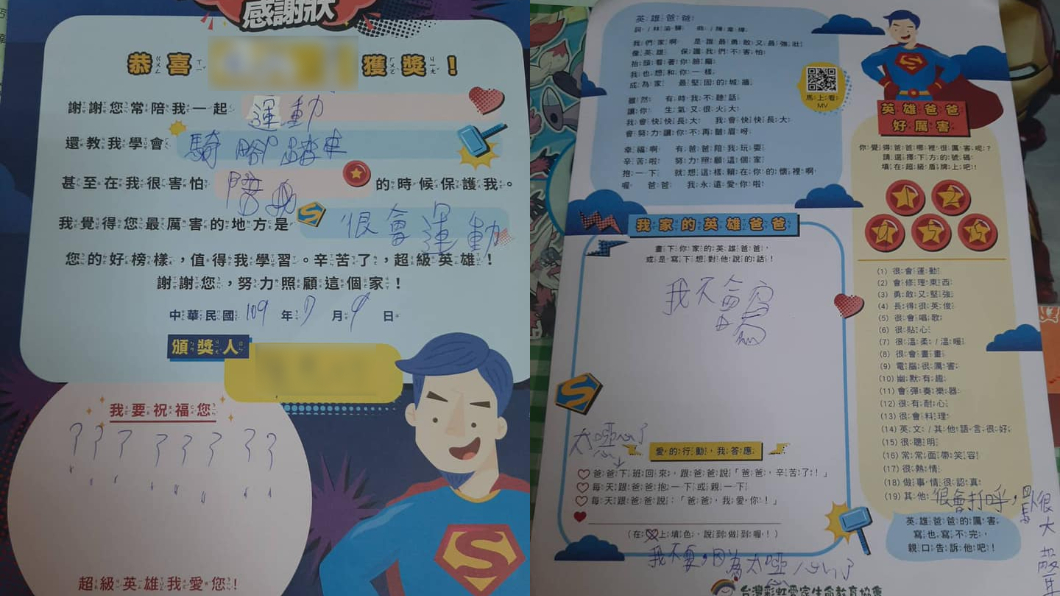 感謝狀
恭喜
獲獎！
謝謝您常陪我一起 運動
還教我學會 騎腳踏車
甚至在我很害怕 陪我 的時候保護我。
我覺得您最厲害的地方是 很會運動
您的好榜樣，值得我學習。辛苦了，超級英雄！
謝謝您，努力照顧這個家！
中華民國109年7月9日
頒獎人
我要祝福您
？？？？？？？？
超級英雄我愛您！
英雄爸爸
我們家啊 是誰最勇敢又最強壯
像英雄 保護我們不害怕
抬頭看著你前龐
我也想和你一樣
成為家 最堅固的城牆
雖然 有時我不聽話
讓你 生氣又很火大
我會快快長大 我會快快長大
會努力讓你不再皺眉呀
幸福啊 有爸爸陪我玩耍
辛苦啦 努力照顧這個家
抱一下 就想這樣賴在你的懷裡啊
喔 爸爸 我永遠愛你啦
馬上看
MV
英雄爸爸
好厲害
你覺得爸爸哪裡很厲害呢？
請選擇下方的號碼
填在超級盾牌上吧！
(1) 很會運動
(2) 會修理東西
(3) 勇敢又堅強
(4) 長得很英俊
(5) 很會唱歌
(6) 很貼心
(7) 很溫柔/溫暖
(8) 很會畫畫
(9) 電腦很厲害
(10) 幽默有趣
(11) 會彈奏樂器
(12) 很有耐心
(13) 很會料理
(14) 英文/其他語言很好
(15) 很聰明
(16) 常常面帶笑容
(17) 很熱情
(18) 做事情很認真
(19) 其他 很會打呼，
很大
英雄爸爸的厲害
寫也寫不完，
親口告訴他吧！
我家的英雄爸爸
畫下你家的英雄爸爸，
或是寫下想對他說的話！
我不會寫
太噁心了
愛的行動，我答應
爸爸下班回來，跟爸爸說「爸爸，辛苦了！」
每天跟爸爸抱一下或親一下
每天跟爸爸說：「爸爸，我愛你！」
(在♡上填色，說到做到喔！)
我不要，因為太噁心了
台灣彩虹愛家生命教育協會